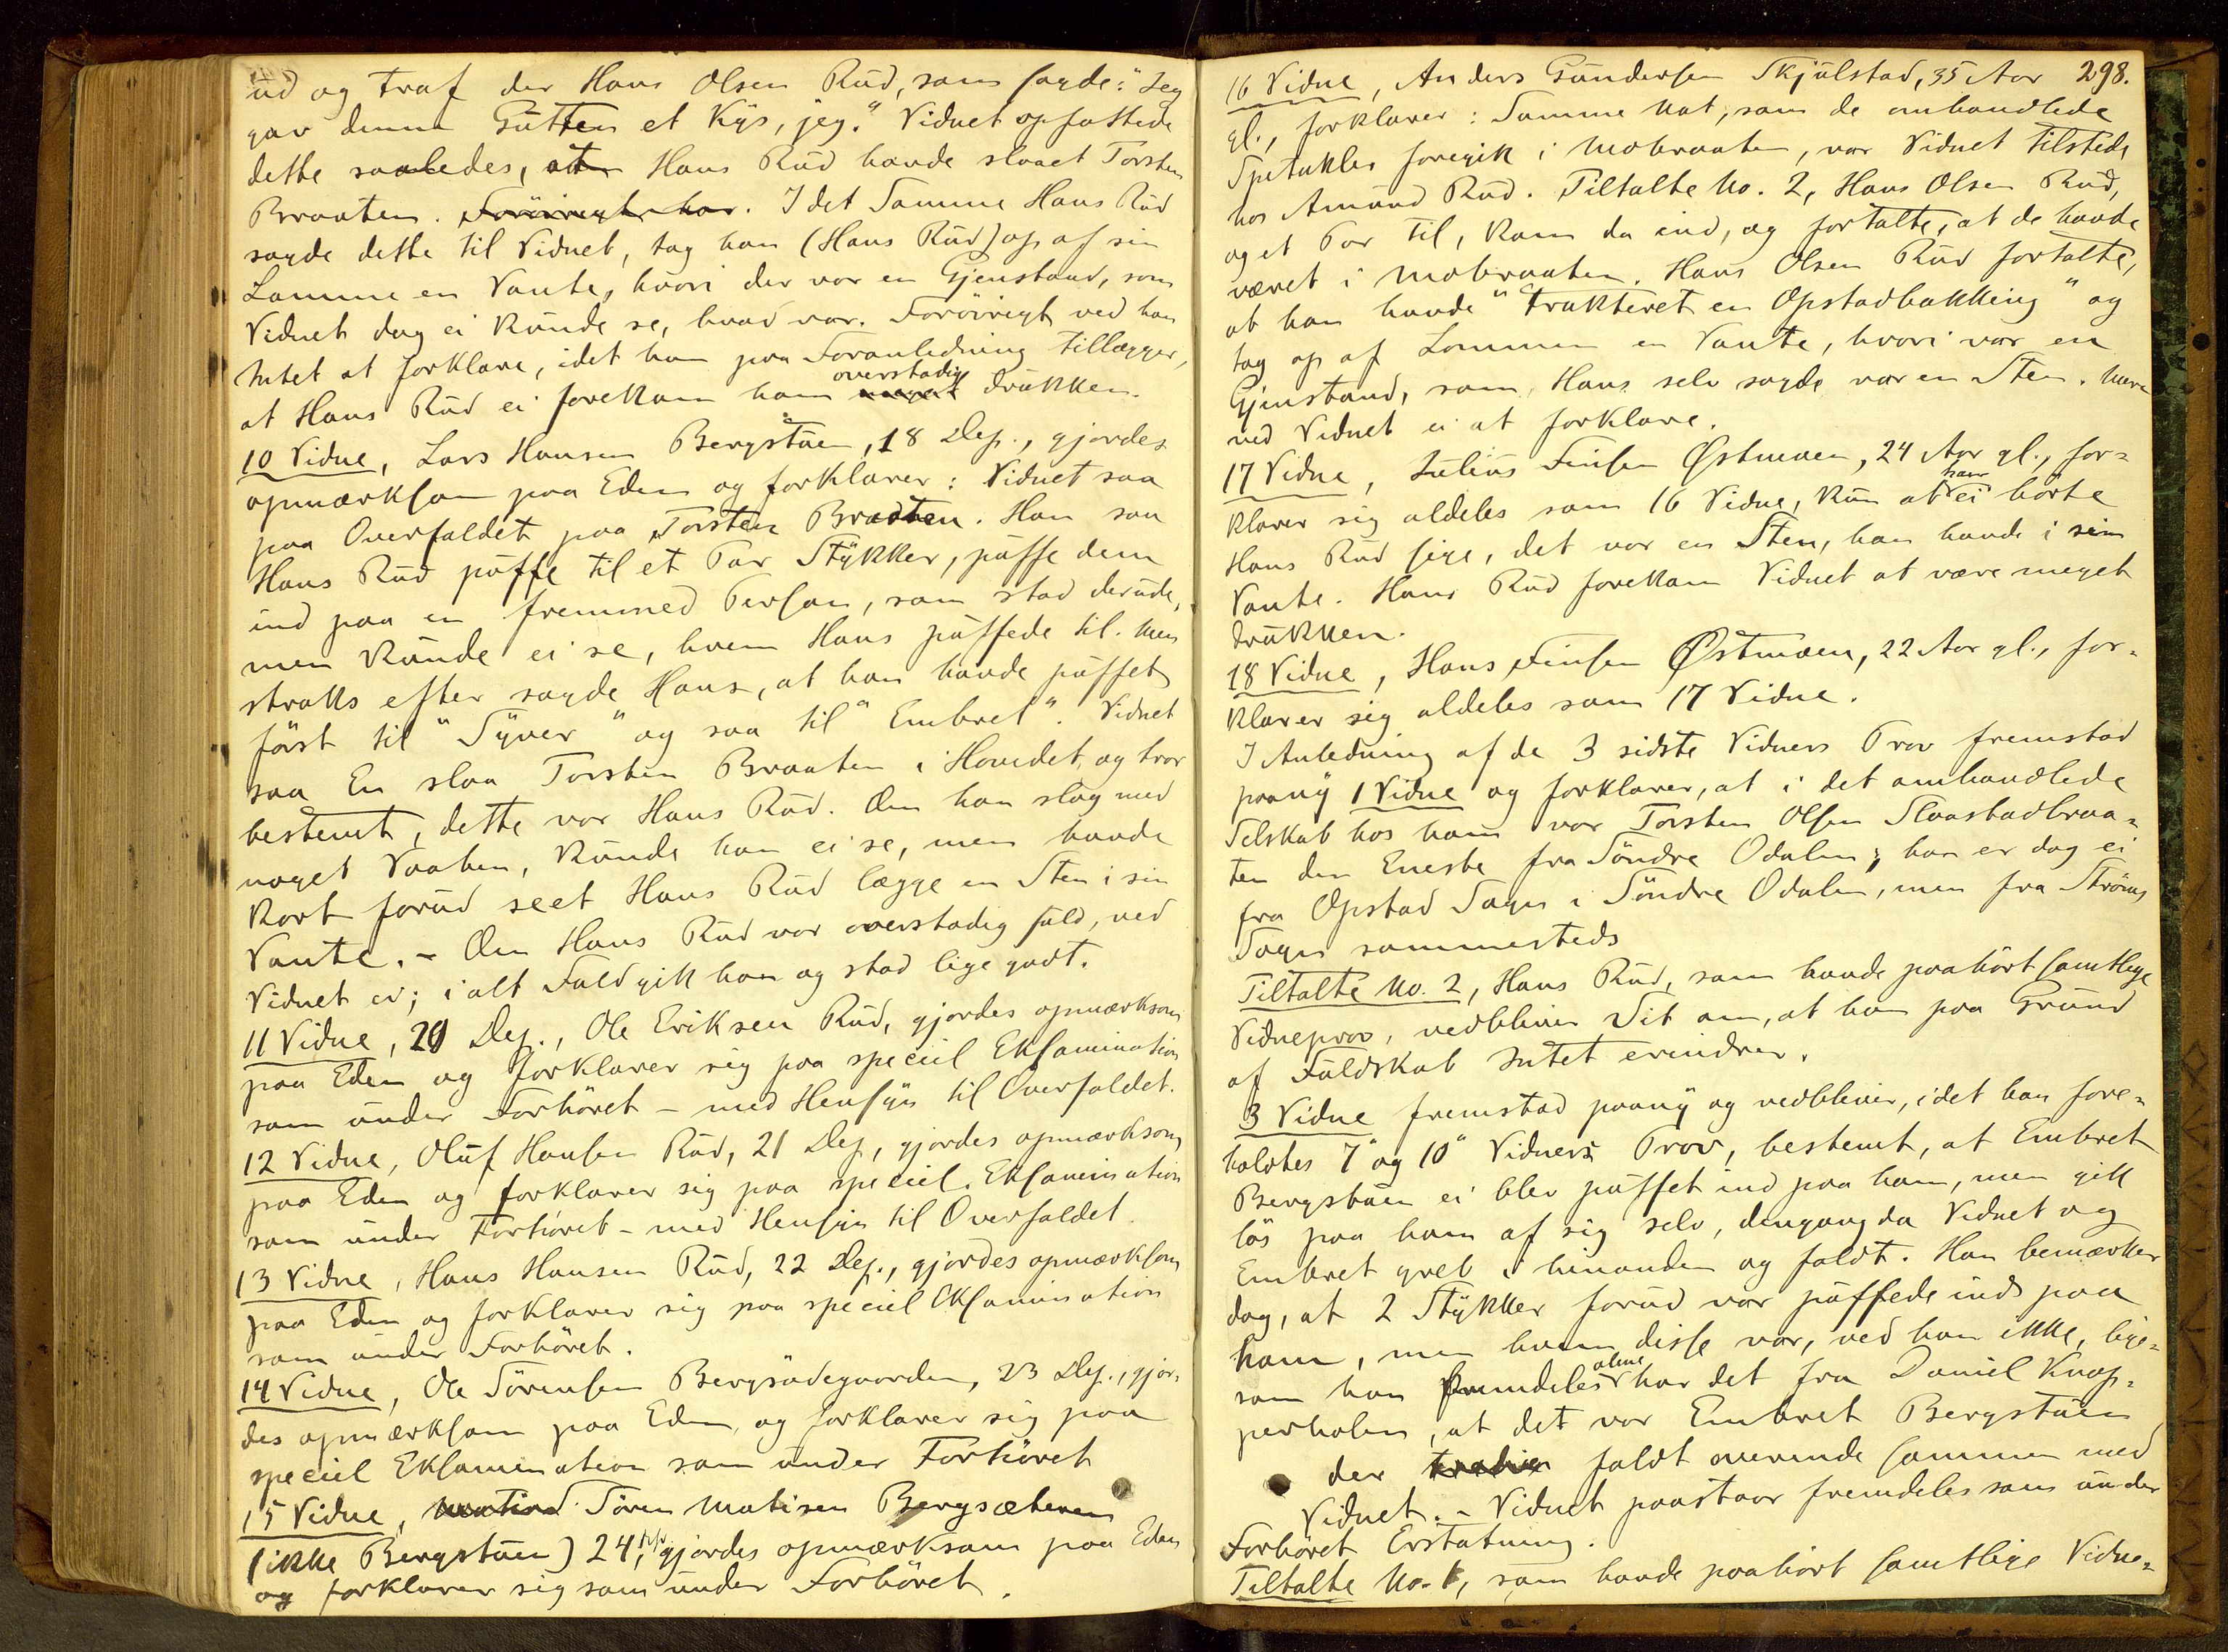 ud og traf der Hans Olsen Rud, som sagde: "Jeg
gav denne Gutten et Kys, jeg." Vidnet opfattede
dette saaledes, at Hans Rud havde slaaet Torsten
Braaten. Forøvrigt har. I det Samme Hans Rud
sagde dette til Vidnet, tog han (Hans Rud) op af sin
Lomme en Vante, hvori der var en Gjenstand, som
Vidnet dog ei kunde se, hvad var. Forøvrigt ved han
Intet at forklare, idet han paa Foranledning tillægger,
at Hans Rud ei forekom ham overstadig drukken.
10 Vidne, Lars Hansen Bergstuen, 18 Dep., gjordes
opmærksom paa Eden og forklarer: Vidnet saa
paa Overfaldet paa Torsten Braaten. Han saa
Hans Rud puffe til et Par Stykker, puffe dem
ind paa en fremmed Person, som stod derude,
men kunde ei se, hvem Hans puffede til. Men
straks efter sagde Hans, at han havde puffet
først til "Syver" og saa til "Embret". Vidnet
saa En slaa Torsten Braaten i Hovedet, og tror
bestemt, dette var Hans Rud. Om han slog med
noget Vaaben, kunde han ei se, men havde
kort forud seet Hans Rud lægge en Sten i sin
Vante. - Om Hans Rud var overstadig fuld, ved
Vidnet ei; i alt Fald gik han og stod lige godt.
11 Vidne, 20 Dep., Ole Eriksen Rud, gjordes opmærksom
paa Eden og forklarer sig paa speciel Eksamination
som under Forhøret - med Hensyn til Overfaldet.
12 Vidne, Oluf Hansen Rud, 21 Dep., gjordes opmærksom
paa Eden og forklarer sig paa speciel Eksamination
som under Forhøret - med Hensyn til Overfaldet.
13 Vidne, Hans Hansen Rud, 22 Dep., gjordes opmærksom
paa Eden og forklarer sig paa speciel Eksamination
som under Forhøret.
14 Vidne, Ole Sørensen Bergsødegaarden, 23 Dep., gjor-
des opmærksom paa Eden og forklarer sig paa
speciel Eksamination som under Forhøret
15 Vidne, Søren Matisen Bergsæteren
(ikke Bergstuen) 24 Dep., gjordes opmærksom paa Eden
og forklarer sig som under Forhøret.
298.
16 Vidne, Anders Gundersen Skjulstad, 35 Aar
gl., forklarer: Samme Nat, som de omhandlede
Spetakler foregik i Mobraaten, var Vidnet tilstede
hos Amund Rud. Tiltalte No. 2, Hans Olsen Rud,
og et Par til, kom da ind, og fortalte, at de havde
været i Mobraaten. Hans Olsen Rud fortalte,
at han havde "trakteret en Opstadbakking" og
tog op af Lommen en Vante, hvori var en
Gjenstand, som Hans selv sagde var en Sten. Mere
ved Vidnet ei at forklare.
17 Vidne, Julius Finsen Østmoen, 24 Aar gl., for-
klarer sig aldeles som 16 Vidne, kun at han ei hørte
Hans Rud sige, det var en Sten, han havde i sin
Vante. Hans Rud forekom Vidnet at være meget
drukken.
18 Vidne, Hans Finsen Østmoen, 22 Aar gl., for-
klarer sig aldeles som 17 Vidne.
I Anledning af de 3 sidste Vidners Prov fremstod
paany 1 Vidne og forklarer, at i det omhandlede
Selskab hos ham var Torsten Olsen Slaastadbraa-
ten den Eneste fra Søndre Odalen; han er dog ei
fra Opstad Sogn i Søndre Odalen, men fra Strøms
Sogn sammesteds
Tiltalte No. 2, Hans Rud, som havde paahørt samtlige
Vidneprov, vedbliver Sit om, at han paa Grund
af Fuldskab Intet erindrer.
3 Vidne fremstod paany og vedbliver, idet han fore-
holdtes 7" og 10" Vidners Prov, bestemt, at Embret
Bergstuen ei blev puffet ind paa ham, men gik
løs paa ham af sig selv, dengang da Vidnet og
Embret greb i hinanden og faldt. Han bemærker
dog, at 2 Stykker forud var puffede ind paa
ham, men hvem disse var, ved han ikke, lige-
som han fremdeles alene har det fra Daniel Knap-
perholen, at det var Embret Bergstuen
der faldt overende sammen med
Vidnet. - Vidnet paastaar fremdeles som under
Forhøret Erstatning.
Tiltalte No. 1, som havde paahørt samtlige Vidne-